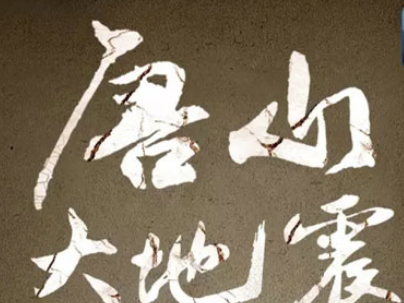 唐山
大地震